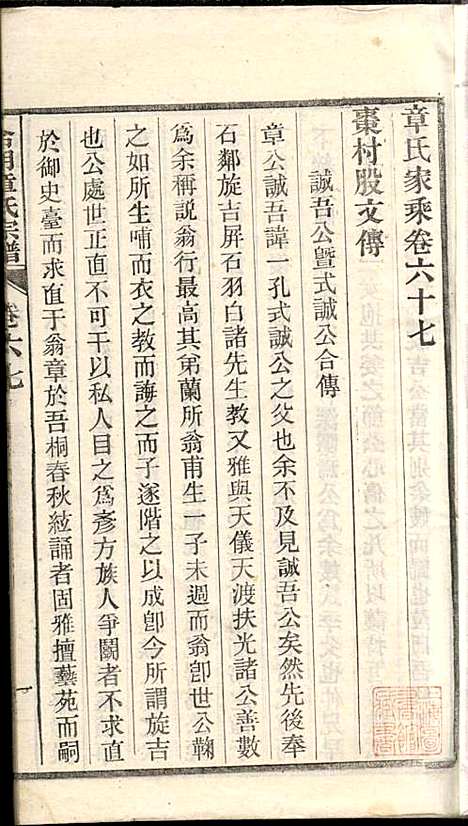 章氏家乘卷六十七
棗村股文傳
誠吾公暨式誠公合傳
章公誠吾諱一孔式誠公之父也余不及見誠吾公矣然先後奉
石鄰旋吉屏石羽白諸先生教又雅與天儀天渡扶光諸公善數
爲余稱說翁行最高其弟蘭所翁甫生一子未週而翁卽世公鞠
之如所生哺而衣之教而誨之而子遂階之以成卽今所謂旋吉
也公處世正直不可干以私人目之爲彥方族人爭鬭者不求直
於御史臺而求直于翁章於吾桐春秋絃誦者固雅擅藝苑而嗣
章氏宗譜
卷六七
一